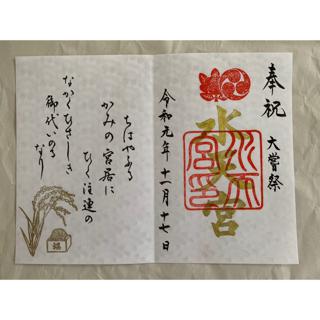 奉祝 大嘗祭
水天宮
水天宮印
令和元年十一月十七日
ちはやふる
かみの宮居に
ひく注連の
なかくひさしき
御代いのる
なり